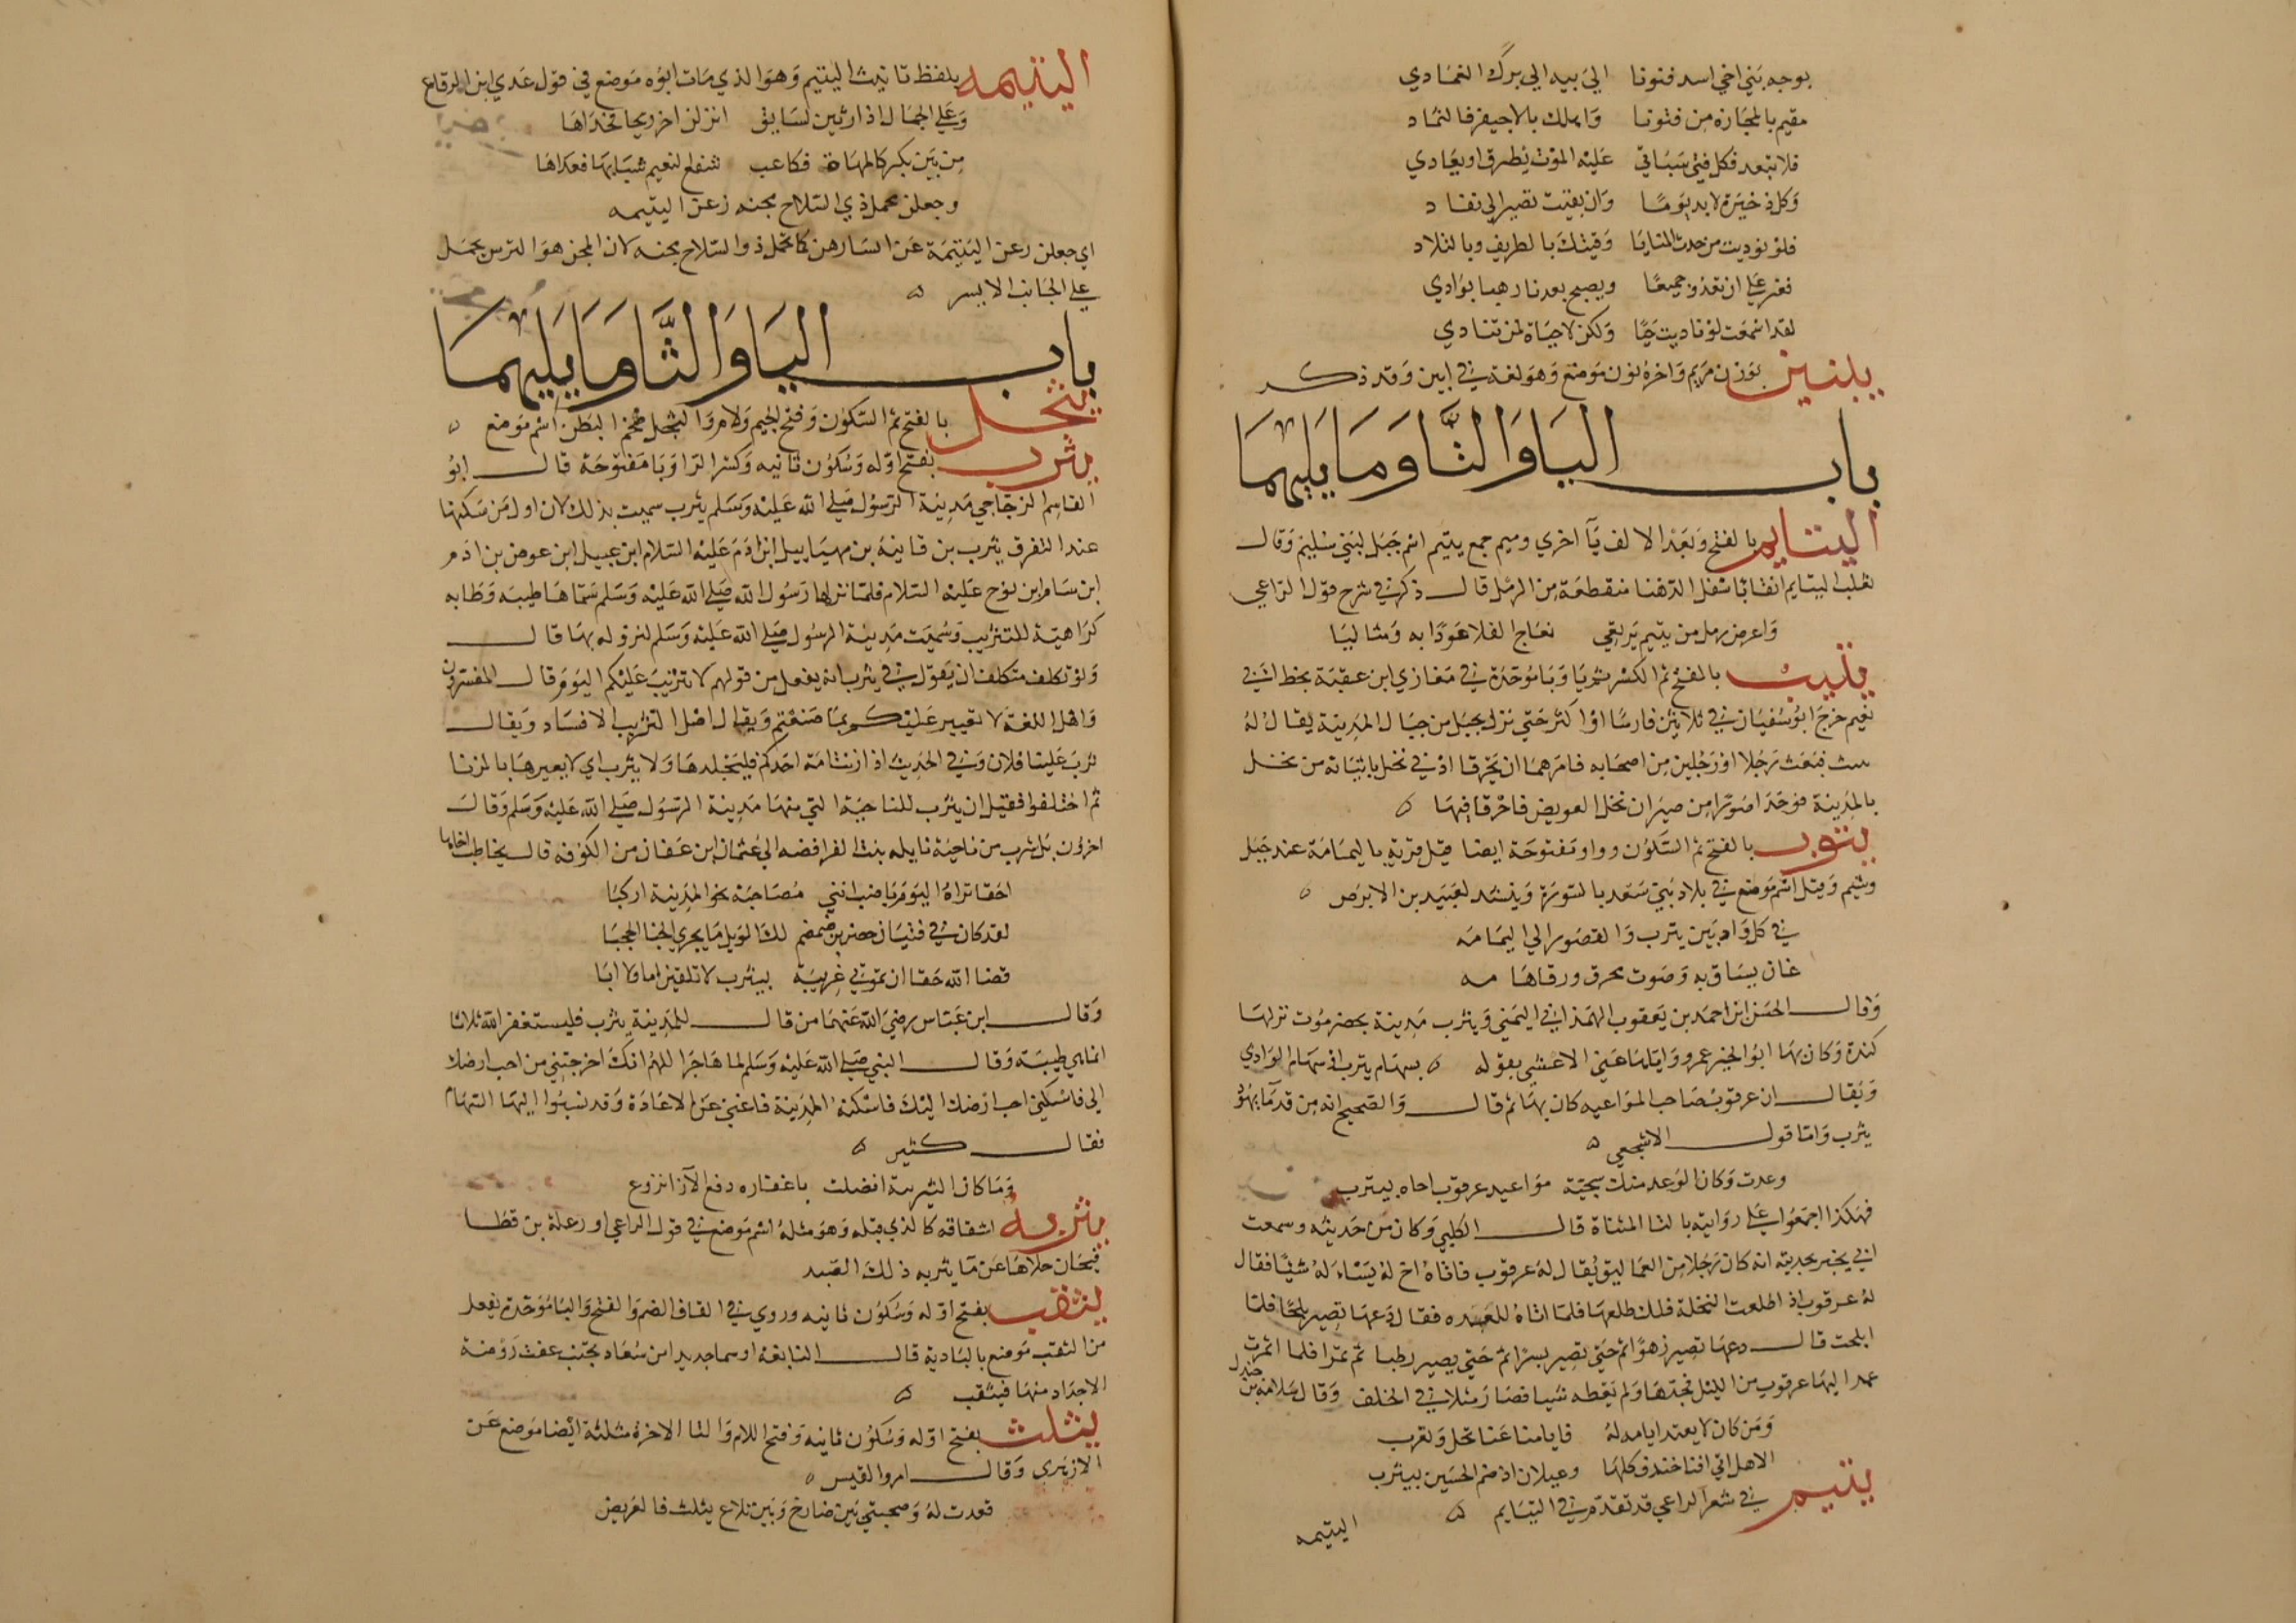 بوجه بني اخي اسد قنونا الي بيه الي برك الغمادي
مقيم بالمجازه من قنونا واهلك بالاجيفر فالثماد
فلا تبعد فكل فتي سياتي عليه الموت يطرق او يغادي
وكل ذخيرة لا بد يوما وان بقيت تصير الي نفاد
فلو فوديت من حدث المنايا وقيتك بالطريف وبالتلاد
فعز علي ان نغدو جميعا ويصبح بعدنا رهنا بوادي
لقد اسمعت لو ناديت حيا ولكن لا حياة لمن تنادي
يبنين بوزن مريم واخره نون موضع وهو لغة في ابين وقد ذكر
باب اليا والتا وما يليهما
اليتايم بالفتح وبعد الالف يآ اخري وميم جمع يتيم اسم جبل لبني سليم وقال
ثعلب اليتايم انقا باسفل الدهنا منقطعة من الرمل قال ذكر في شرح قول الراعي
واعرض رمل من يتيم يرتعي نعاج الفلا عوذا به ومتاليا
يتيب بالفتح ثم الكسر ثم يا وبا موحدة في مغازي ابن عقبة بخط ابي
نعيم خرج ابو سفيان في ثلاثين فارسا او اكثر حتي نزل بجبل من جبال المدينة يقال له
فبعث رجلا او رجلين من اصحابه فامرهما ان يحرقا ادني نخل ياتيانه من نخل
بالمدينة فوجدا صورا من صيران نخل العريض فاحرقا فيها
يترب بالفتح ثم السكون وراو مفتوحة ايضا قيل قرية باليمامة عند جبل
وشيم وقيل اسم موضع في بلاد بني سعد بالسورة وينشد لعبيد بن الابرص
في كل واد بين يترب والقصور الي اليمامه
عان يساق به وصوت محرق ورقاها مه
وقال الحسن ابن احمد بن يعقوب الهمذاني اليمني ويترب مدينة بحضرموت نزلها
كندة وكان بها ابو الخير عمرو واياها عني الاعشي بقوله بسهام يترب او سهام الوادي
ويقال ان عرقوب صاحب المواعيد كان بها ثم قال والصحيح انه من قدمآ يهود
يثرب واما قول الاشجعي
وعدت وكان الوعد منك سجية مواعيد عرقوب اخاه بيترب
فهكذا اجمعوا علي روايته بالتا المثناة قال الكلبي وكان من حديثه وسمعت
ابي يخبر بحديثه انه كان رجلا من العماليق يقال له عرقوب فاتاه اخ له يسئله شيئا فقال
له عرقوب اذ اطلعت النخلة فلك طلعها فلما اتاه للعده فقال دعها تصير بلحا فلما
ابلحت قال دعها تصير زهوا ثم حتي تصير بسرا ثم حتي يصير رطبا ثم تمرا فلما اثمرت
عمد اليها عرقوب من الليل فجدها ولم يعطه شيا فصار مثلا في الخلف وقال سلامة بن جندل
ومن كان لا يعتد ايامه له فايامنا عنا تحل وتعرب
الا هل اتي افنا خندف كلها وعيلان اذ ضم الحسين بيترب
يتيم في شعر الراعي قد تقدم في اليتايم
اليتيمه
اليتيمه بلفظ تانيث اليتيم وهو الذي مات ابوه موضع في قول عدي ابن الرقاع
وعلي الجمال اذا رثين لسايق انزلن اخر ريحا فحداها
من بين بكر كالمهاة فكاعب شفع لنعيم شبابها فعداها
وجعلن محمل ذي السلاح مجنه رعن اليتيمه
اي جعلن رعن اليتيمة عن ايسارهن كما تحمل ذو السلاح مجنه لان المجن هو الترس يحمل
علي الجانب الايسر
باب اليا والثا وما يليهما
يثجل بالفتح ثم السكون وفتح الجيم ولام والثجل ضخم البطن اسم موضع
يثرب بفتح اوله وسكون ثانيه وكسر الرا وبا مفتوحة قال ابو
القاسم الزجاجي مدينة الرسول صلي الله عليه وسلم يثرب سميت بذلك لان اول من سكنها
عند التفرق يثرب بن قاينة بن مهياييل ابن ادم عليه السلام ابن عبيل ابن عوض بن ادم
ابن سام ابن نوح عليه السلام فلما نزلها رسول الله صلي الله عليه وسلم سماها طيبه وطابه
كراهية للتثريب وسميت مدينة الرسول صلي الله عليه وسلم لنزوله بها قال
ولو تكلف متكلف ان يقول في يثرب انه يفعل من قولهم لا تثريب عليكم اليوم قال المفسرون
واهل اللغة لا تعيير عليكم بما صنعتم ويقال اصل التثريب الافساد ويقال
ثرب علينا فلان وفي الحديث اذا زنت امة احدكم فليجلدها ولا يثرب اي لا يعيرها بالزنا
ثم اختلفوا فقيل ان يثرب للناحية التي منها مدينة الرسول صلي الله عليه وسلم وقال
اخرون بل يثرب من ناحية نايله بنت الفرافصه الي عثمان ابن عفان من الكوفه قال يخاطب اخاها
احقا تراه اليوم يا ضب انني مصاحبة نحو المدينة اركبا
لقد كان في فتيان حصن بن ضمضم لك الويل ما يجري الخبا المحجبا
قضا الله حقا ان تموتي غريبة بيثرب لا تلقين اما ولا ابا
وقال ابن عباس رضي الله عنهما من قال للمدينة يثرب فليستغفر الله ثلاثا
انما هي طيبة وقال النبي صلي الله عليه وسلم لما هاجرا اللهم انك اخرجتني من احب ارضك
الي فاسكني احب ارضك اليك فاسكنه المدينة فاغني عن الاعادة وقد نسبوا اليها السهام
فقال كثير
وما كان اليثربية انضلت باعقاره دفع الآزا نزوع
يثربه اشتقاقه كالذي قبله وهو مثله اسم موضع في قول الراعي او رعلة من قطا
فيحان حلاها عن ما يثربه ذلك القيد
يثقب بفتح اوله وسكون ثانيه وروي في القاف الضم والفتح والبا موحدة يفعل
من الثقب موضع بالبادية قال النابغة ارسما جديدا من سعاد تجنب عفت روضة
الاجداد منها فيثقب
يثلث بفتح اوله وسكون ثانيه وفتح اللام والثا الاخرة مثلثة ايضا موضع عن
الازهري وقال امروا القيس
قعدت له وصحبتي بين ضارخ وبين تلاع يثلث فالعريض